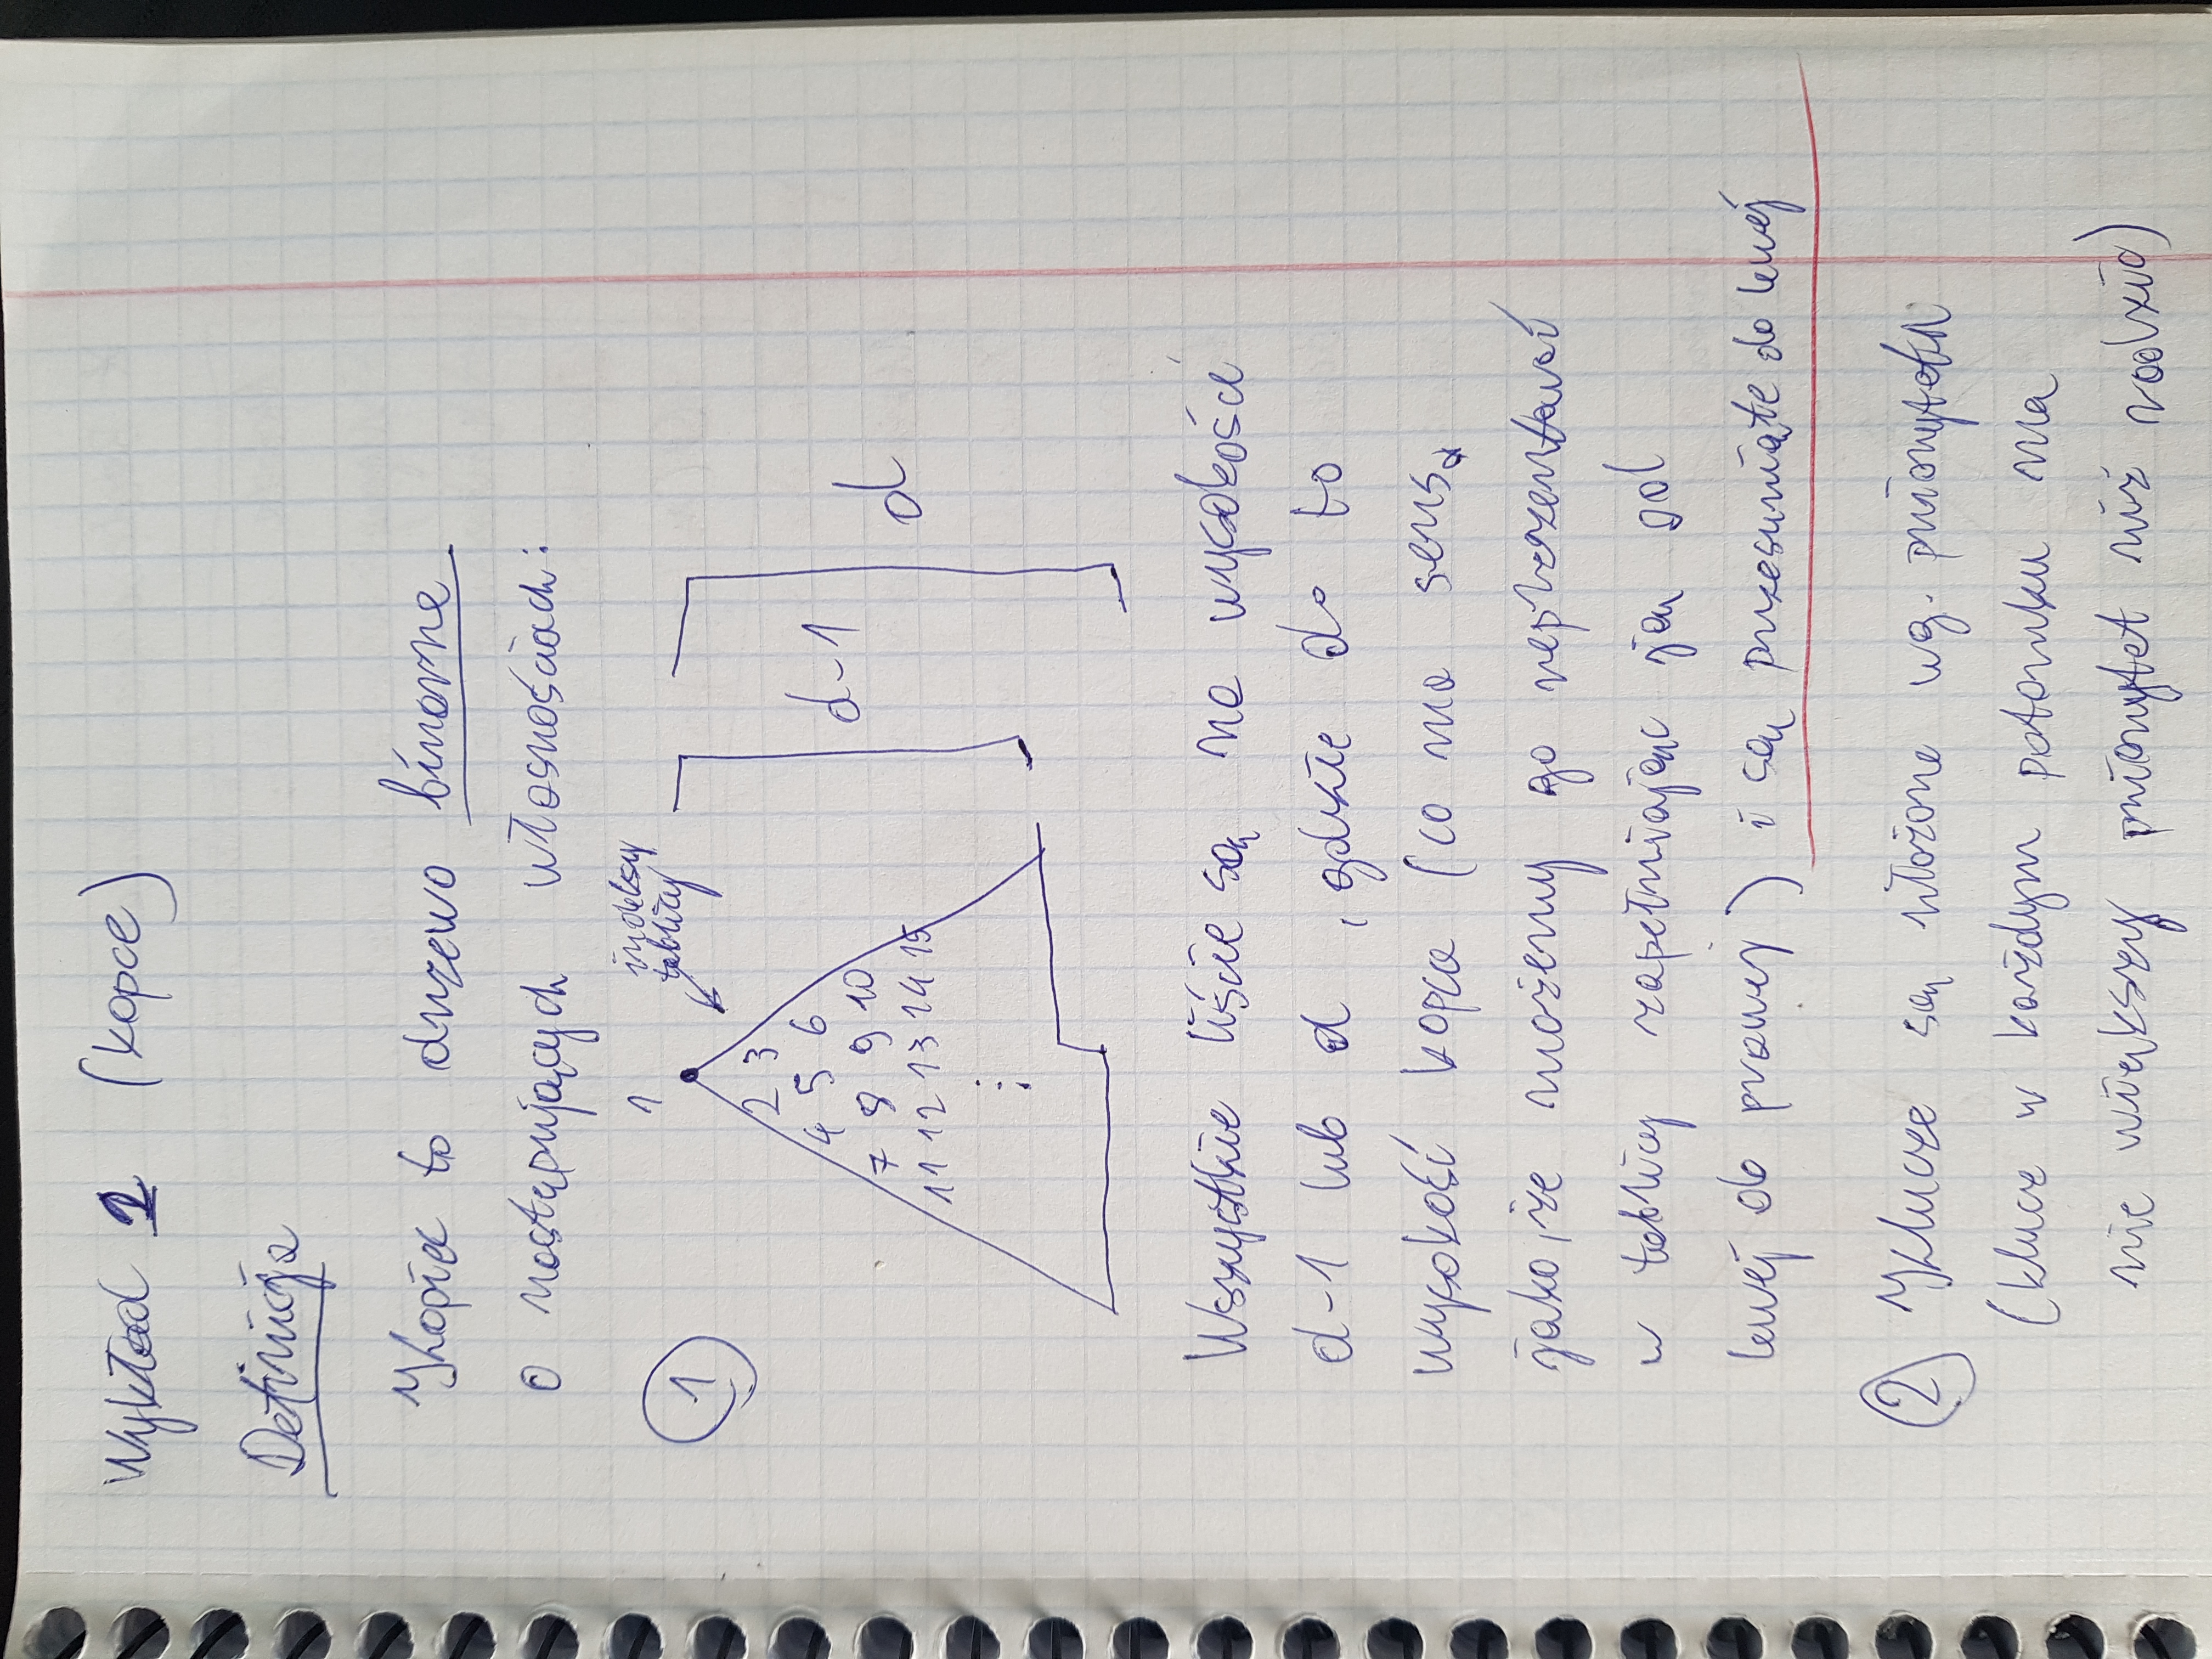 Wykład 2 (kopce)
Definicja
Kopiec to drzewo binarne
o następujących własnościach:
indeksy
tablicy
1
1
2 3
4 5 6
7 8 9 10
11 12 13 14 15
d-1
d
Wszystkie liście są na wysokości
d-1 lub d, gdzie d to
wysokość kopca (co ma sens,
jako, że możemy go reprezentować
w tablicy zapełniając ją od
lewej do prawej) i są przesunięte do lewej
2 Klucze są ułożone wg. priorytetu
(klucz w każdym potomku ma
nie większy priorytet niż rodzic)